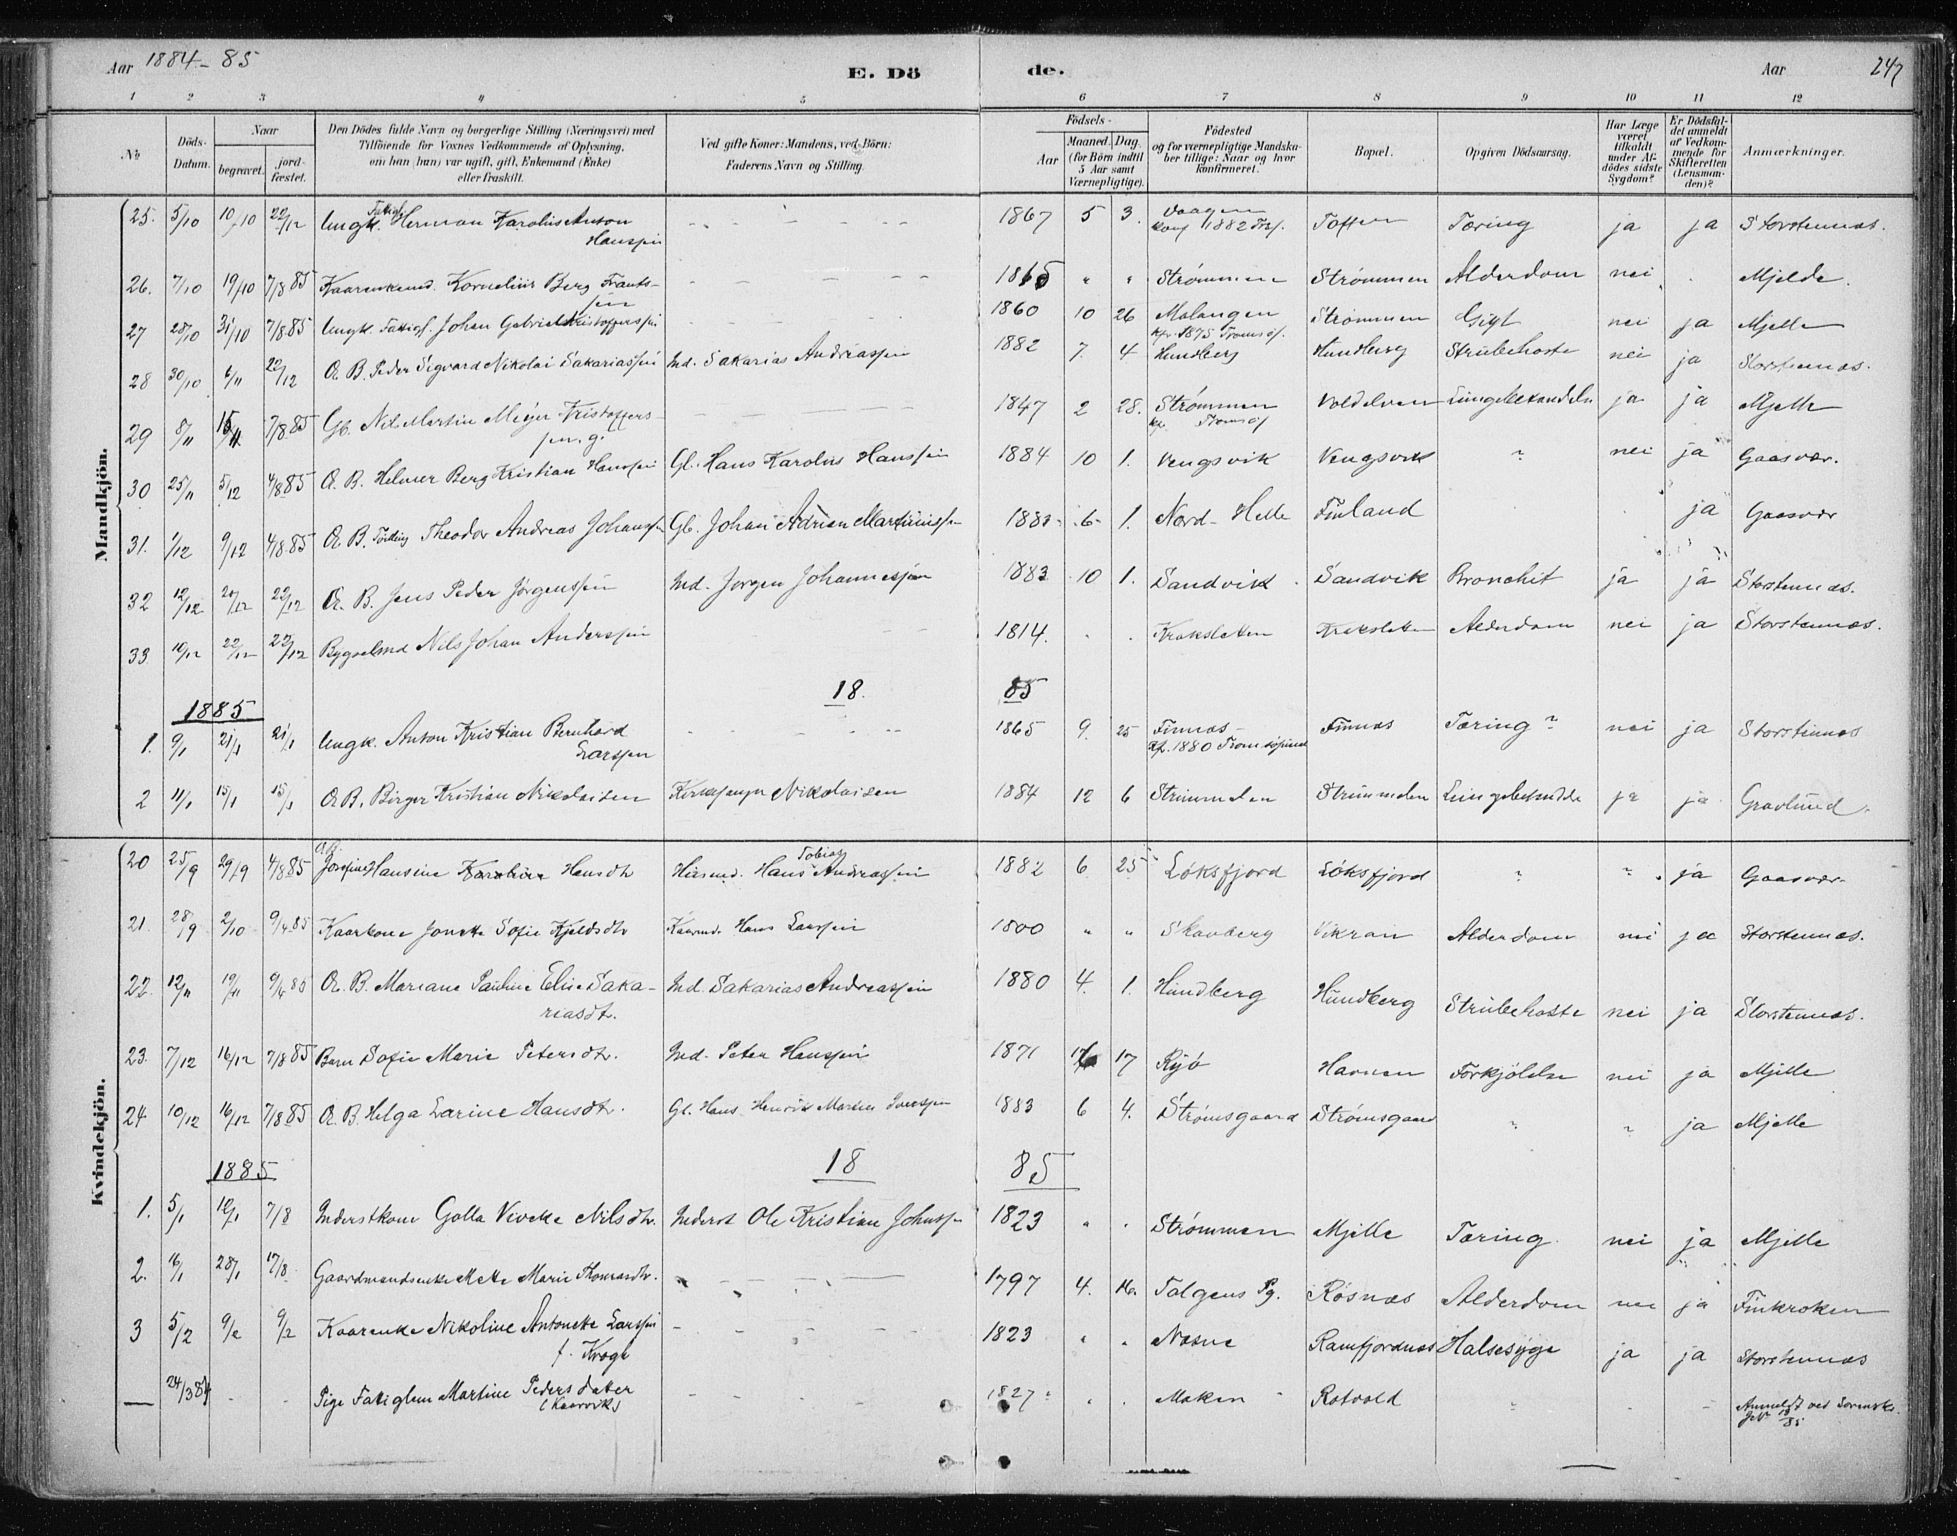 Aar 1884-85 E. Dö de. Aar 247
1 2 3 4 5 6 7 8 9 10 11 12
No
Döds-Datum.
Naar
begravet.
jord-fæstet.
Den Dödes fulde Navn og borgerlige Stilling (Næringsvei) med
Tilföiende for Voxnes Vedkommende af Oplysning,
om han (hun) var ugift, gift, Enkemand (Enke)
eller fraskilt.
Ved gifte Koner: Mandens, ved Börn:
Faderens Navn og Stilling.
Födsels-
Aar
Maaned. Dag.
(for Börn indtil
5 Aar samt
Værnepligtige).
Födested
og for værnepligtige Mandska-
ber tillige: Naar og hvor
konfirmeret.
Bopæl.
Opgiven Dödsaarsag.
Har Læge
været
tilkaldt
under Af-
dödes sidste
Sygdom?
Er Dödsfal-
det anmeldt
af Vedkom-
mende for
Skifteretten
(Lensman-
den)?
Anmærkninger.
Mandkjön.
25. 5/10 10/10 22/12 Ungk. Fattigl. Herman Karolius Anton Hanssen 1867 5 3. Vaagen konf 1882 Troms. Toften Tæring ja ja Storstennæs.
26. 7/10 19/10 7/8 85 Kaarenkemd. Kornelius Berg Frants-sen 1865 " " Strømmen Strømmen Alderdom nei Mjelde.
27 28/10 31/10 7/8 85 Ungk. Fattigl. Johan Gabriel Kristofferssen 1860 10 26 Malangen kfr. 1875 Tromsøs. Strømmen Gigt nei ja Mjelle
28 30/10 6/11 22/12 Æ. B. Peder Sigvard Nikolai Sakariassen Ind. Sakarias Andreassen 1882 7. 4 Hundberg Hundberg Strubehoste nei ja Storstennæs.
29 8/11 15/11 7/8 85 Gb. Nils Martin Meyer Kristoffers-sen. g. 1847 2 28. Strømmen kfr. Tromsøs Voldelven ja ja Mjelle
30 25/11 5/12 4/8 85 Æ. B. Helmer Berg Kristian Hanssen Gl. Hans Karolus Hanssen 1884 10 1. Vengsvik Vengsvik " nei ja Gaasvær.
31. 1/12 9/12 4/8 85 Æ. B. Tvilling Theodor Andreas Johanssen Gb. Johan Adrian Martinuss- 1883 6 1. Nord-Helle Finland ja Gaasvær
32 12/12 20/12 22/12 Æ. B. Jens Peder Jørgenssen Ind. Jørgen Johannessen 1883 10 1. Sandvik Sandvik Bronchit ja ja Storstennæs.
33 10/12 22/12 22/12 Bygselmd Nils Johan Anderssen 1814. Kroksletten Kroksletten Alderdom nei ja Storstennæs.
1885 18 85
1. 9/1 21/1 21/1 Ungk. Anton Kristian Bernhard Larssen 1865 9. 25 Finnæs kfr. 1880 Tromsøsund Finnæs Tæring? nei ja Storstennæs
2 11/1 15/1 15/1 Æ B. Birger Kristian Nikolaisen Kirkesanger Nikolaisen 1884 12 6 Strimmelen Strimmelen ja ja Gravlund.
Kvindekjön.
20 25/9 29/9 4/8 85 Æ.B. Josefine Hansine Karoline Hansdtr Husmd. Hans Tobias Andreassen 1882 6 25 Løksfjord Løksfjord " " ja Gaasvær
21. 28/9 2/10 9/4 85 Kaarkone Jonette Sofie Kjeldsdtr Kaarmd. Hans Larssen 1800 " " Skavberg Vikran Alderdom nei ja Storstennæs.
22. 12/11 19/11 9/4 85 Æ. B. Mariane Pauline Elise Saka-riasdtr. Ind. Sakarias Andreassen 1880 4. 1. Hundberg Hundberg Strubehoste nei ja Storstennæs.
23. 7/12 16/12 7/8 85 Barn Sofie Marie Petersdtr. Ind. Peter Hanssen 1871 17 Ryø Havnen Forkjølelse nei ja Mjelle
24 10/12 16/12 7/8 85 Æ. B. Helga Larine Hansdtr. Gl. Hans Henrik Martin 1883 6 4. Strømsgaard Strømsgaard " " ja Mjelle
1885 18 85
1. 5/1 12/1 7/8 Inderstkone Golla Viveke Nilsdtr. Inderst Ole Kristian Johnss- 1823 " " Strømmen Mjelle Tæring. nei ja Mjelle
2. 16/1 28/1 17/8 Gaardmandsenke Mette Marie Thomasdtr. 1797 4. 16. Tolgens Pg. Røsnæs Alderdom nei ja Finkroken
3 5/2 9/2 9/2 Kaarenke Nikoline Antonette Larssen f. Krogh 1823 " " Næsne Ramfjordnæs Halsesyge ja ja Storstennæs
— 24/3 84 Pige Fattiglem Martine Pedersdatter (Kaarvik) 1827 Maken Rotvold Anmeldt ved